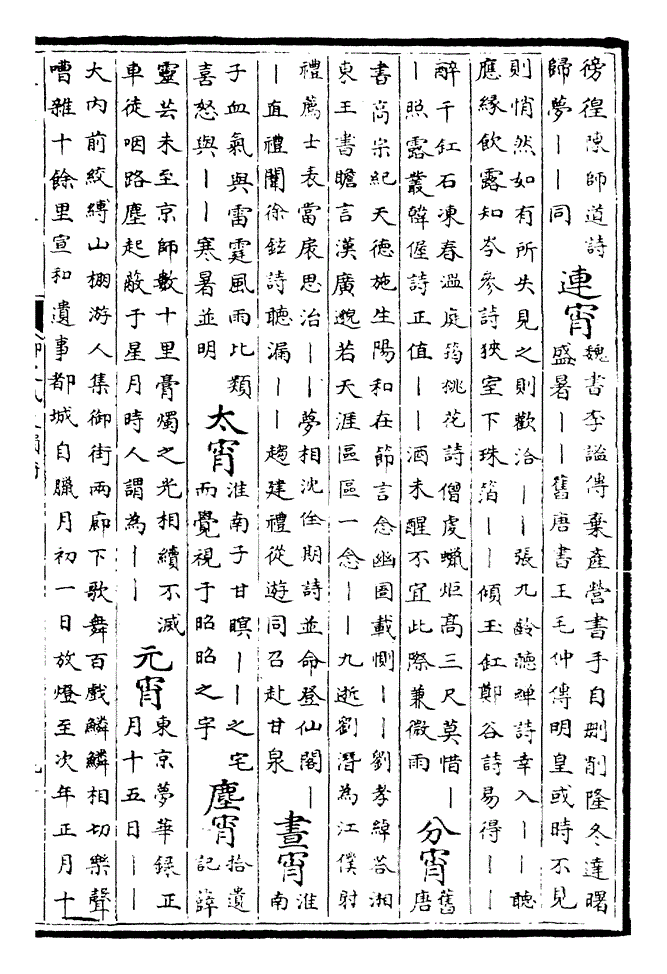 徬徨陳師道詩
歸夢丨丨同
連宵
魏書李謐傳棄產營書手自刪削隆冬達曙
盛暑丨丨舊唐書王毛仲傳明皇或時不見
則悄然如有所失見之則歡洽丨丨張九齡聽蟬詩幸入丨丨聽
應緣飲露知岑參詩狹室下珠箔丨丨傾玉缸鄭谷詩易得丨丨
醉千缸石凍春溫庭筠桃花詩僧虔蠟炬高三尺莫惜丨
丨照露叢韓偓詩正值丨丨酒未醒不宜此際兼微雨
分宵
舊
唐
書高宗紀天德施生陽和在節言念幽圄載惻丨丨劉孝綽荅湘
東王書瞻言漢廣邈若天涯區區一念丨丨九逝劉潛為江僕射
禮薦士表當扆思治丨丨夢相沈佺期詩並命登仙閣丨
丨直禮闈徐鉉詩聽漏丨丨趨建禮從遊同召赴甘泉
晝宵
淮
南
子血氣與雷霆風雨比類
喜怒與丨丨寒暑並明
太宵
淮南子甘瞑丨丨之宅
而覺視于昭昭之宇
塵宵
拾遺
記薛
靈芸未至京師數十里膏燭之光相續不滅
車徒咽路塵起蔽于星月時人謂為丨丨
元宵
東京夢華錄正
月十五日丨丨
大內前絞縛山棚游人集御街兩廊下歌舞百戲鱗鱗相切樂聲
嘈雜十餘里宣和遺事都城自臘月初一日放燈至次年正月十